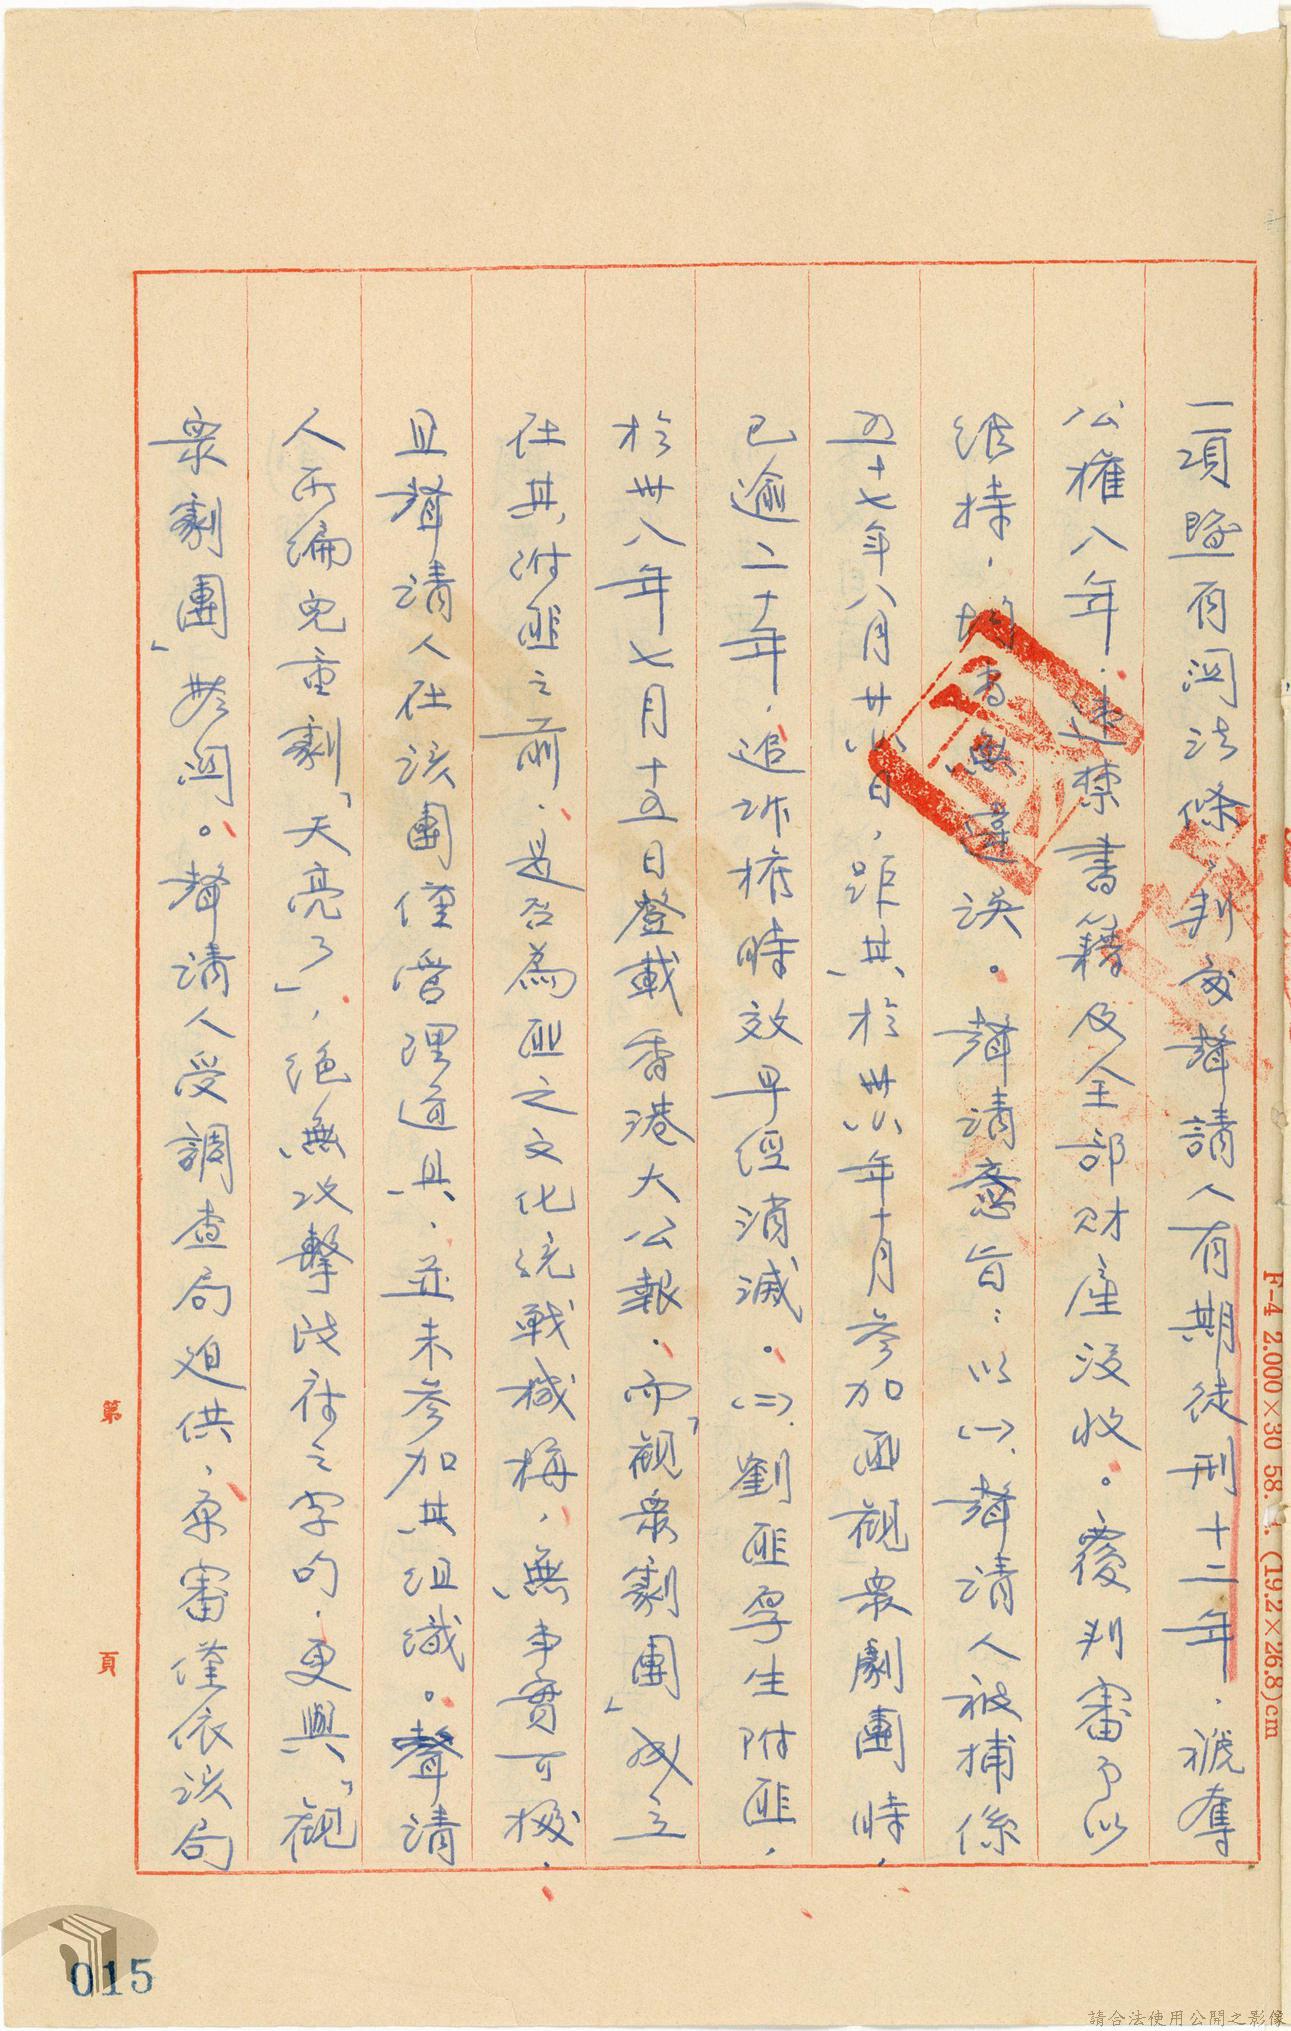 一項暨有関法條,判處聲請人有期徒刑十二年,褫奪
公權八年,違禁書籍及全部財產沒收。覆判審予以
維持,均尚無違誤。聲清意旨:以(一)、聲清人被捕係
五十七年八月廿八日,距其於卅八年十月參加匪觀衆劇團時,
已逾二十年,追訴權時效早經消滅。(二)、劉匪厚生附匪,
於卅八年七月十五日登載香港大公報,而「觀衆劇團」成立
在其附匪之前,是否為匪之文化統戰機構,無事實可按,
且聲清人在該團僅管理道具,並未參加其組織。聲清
人所編兒童劇「天亮了」,絕無攻擊政府之字句,更與「觀
衆劇團」無関。聲清人受調查局迫供,原審僅依該局
第 頁
F-4 2.000×30 58. . (19.2×26.8)cm
015
請合法使用公開之影像